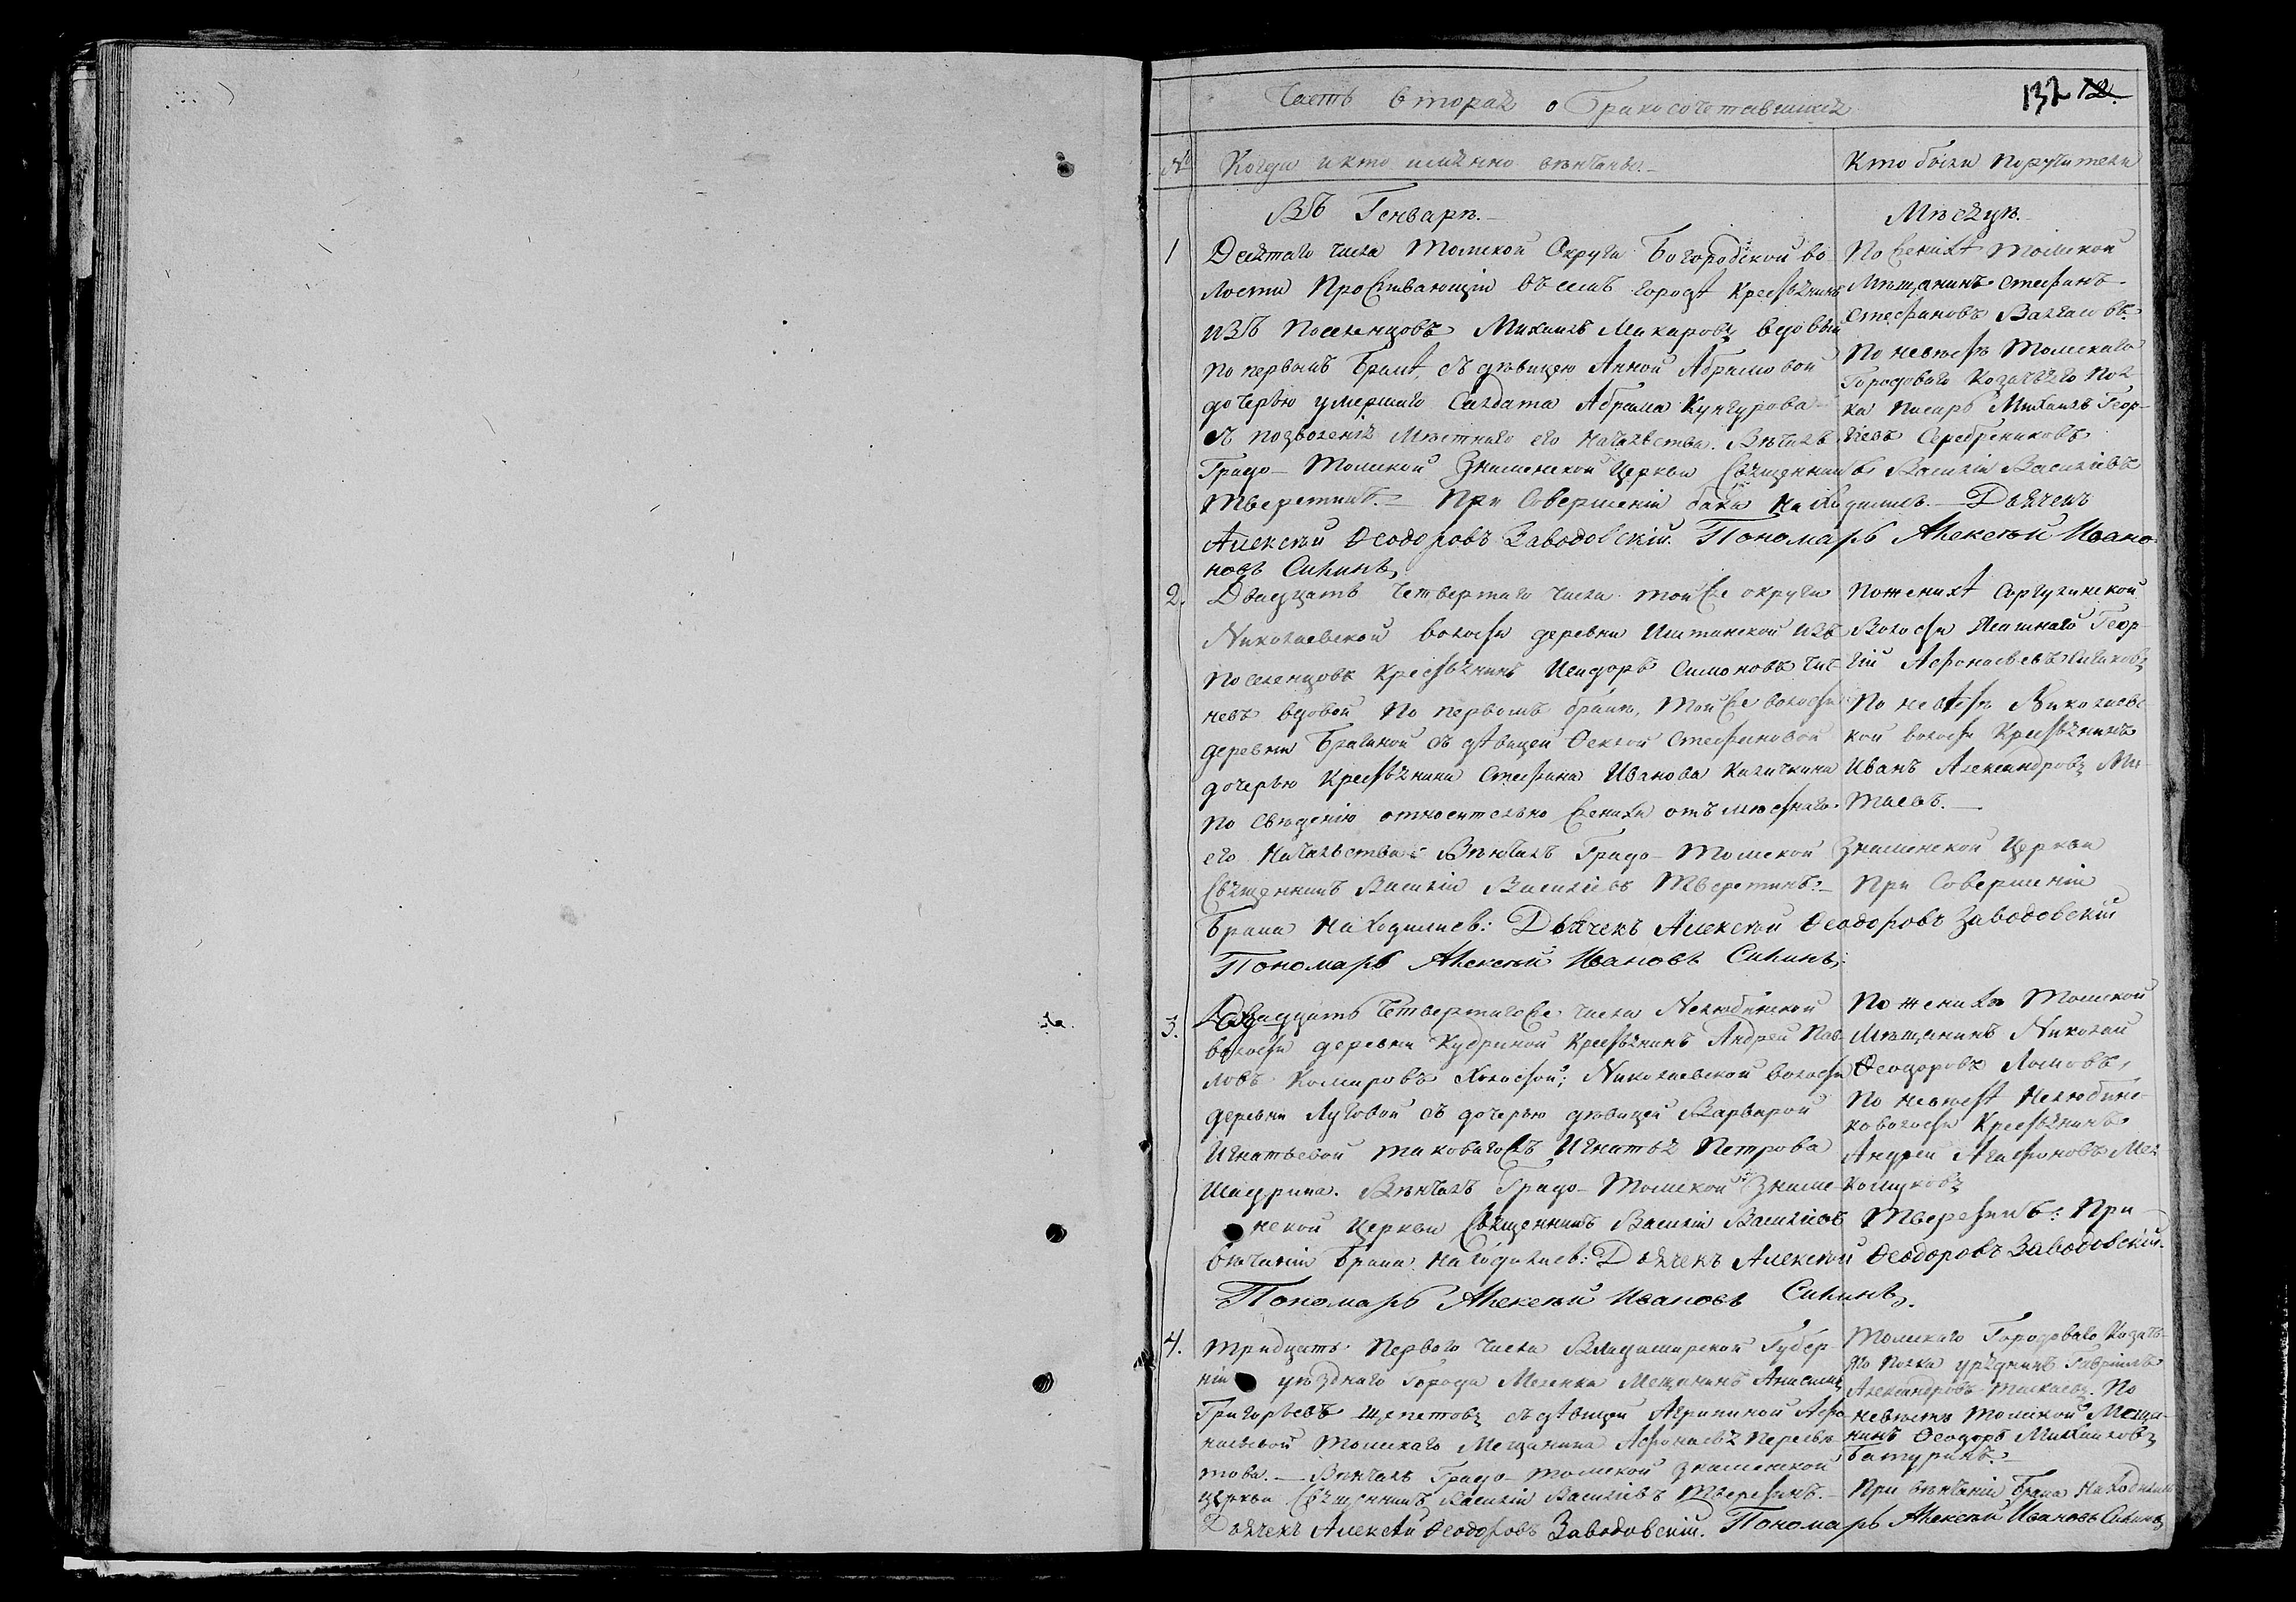 Часть вторая о Бракосочетавшихся
132 12.
№ Когда и кто имянно венчаны.
Кто были поручители
Въ Генваре.
Месяце.
1 Десятаго числа Томской Округи Богородской во-
лости проживающій въ семъ городѣ крестьянинъ
изъ поселенцовъ Михаилъ Макаровъ вдовый
по первомъ бракѣ, съ девицею Анной Абрамовой
дочерью умершаго Салдата Абрама Кунгурова
съ позволенія местнаго его начальства. Венчалъ
Градо-Томской Знаменской Церкви Священникъ Василій Васильевъ
Тверетинъ. При Совершеніи брака находились. Дьячекъ
Алексѣй Ѳеодоровъ Заводовскій. Пономарь Алексѣй Ивано-
новъ Сивинъ
По женихѣ Томской
Мѣщанинъ Стефанъ
Стефановъ
По невесте Томскаго
Городоваго Козачьего пол-
ка писарь Михаилъ Геор-
гіевъ Серебрениковъ
2. Двадцать четвертаго числа той же округи
Николаевской волости деревни Иштанской изъ
поселенцовъ Крестьянинъ Исидоръ Симоновъ
вдовой по первомъ браке, той же волости
деревни съ дѣвицей Ѳеклой Стефановой
дочерью Крестьянина Стефана Иванова Каличкина
по сведенію относительно жениха отъ местнаго
его начальства: Венчалъ Градо-Томской Знаменской Церкви
Священникъ Василій Васильевъ Тверетинъ. При Совершеніи
брака находились: Дьячекъ Алексѣй Ѳеодоровъ Заводовскій
Пономарь Алексѣй Ивановъ Сивинъ.
По женихѣ
Волости Ясашнаго Геор-
гій Афонасьевъ
По невесте Николаевс
кой волости Крестьянинъ
Иванъ Александровъ
3. Двадцать четвертаго же числа Нелюбинской
волости деревни Кудриной Крестьянинъ Андрей Пав-
ловъ Комаровъ холостой; Николаевской волости
деревни Луговой съ дочерью девицей Варварой
Игнатьевой таковагожъ Игнатья Петрова
Шадрина. Венчалъ Градо-Томской Знаме-
нской Церкви Священникъ Василій Васильевъ Тверетинъ: При
венчаніи брака находились: Дьячекъ Алексѣй Ѳеодоровъ Заводовскій.
Пономарь Алексѣй Ивановъ Сивинъ.
По жениху Томской
Мещанинъ Николай
Ѳеодоровъ Ломовъ,
По невестѣ Нелюбинс-
ко волости Крестьянинъ
Андрей Агафоновъ
4. Тридцать перваго числа Владимирской Губер-
ніи уезднаго города Меленки Мещанинъ Анисимъ
Григорьевъ Щепетовъ съ дѣвицей Агрипиной Афо-
насьевой Томскаго Мещанина Афонасья
Венчалъ Градо-Томской Знаменской
церкви Священникъ Василій Васильевъ Тверетинъ.
При венчаніи брака находились
Дьячекъ Алексѣй Ѳеодоровъ Заводовскій. Пономарь Алексѣй Ивановъ Сивинъ
Томскаго Городоваго Козачь-
яго полка урядникъ Гавріилъ
Александровъ. По
невесте Томской Меща-
нинъ Ѳеодоръ Михаиловъ
Батуринъ.